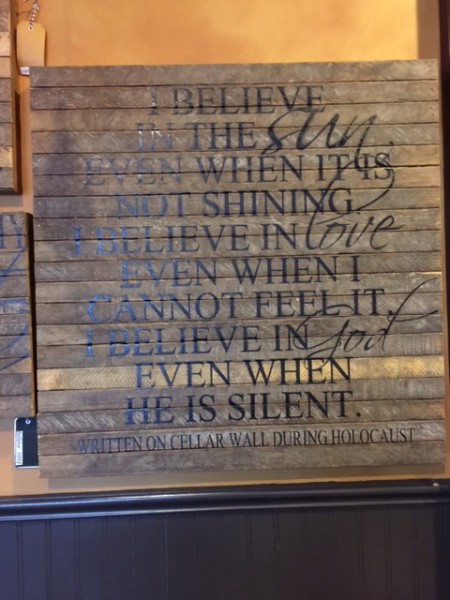 I BELIEVE
IN THE sun
EVEN WHEN IT IS
NOT SHINING.
I BELIEVE IN love
EVEN WHEN I
CANNOT FEEL IT.
I BELIEVE IN God
EVEN WHEN
HE IS SILENT.
-WRITTEN ON CELLAR WALL DURING HOLOCAUST